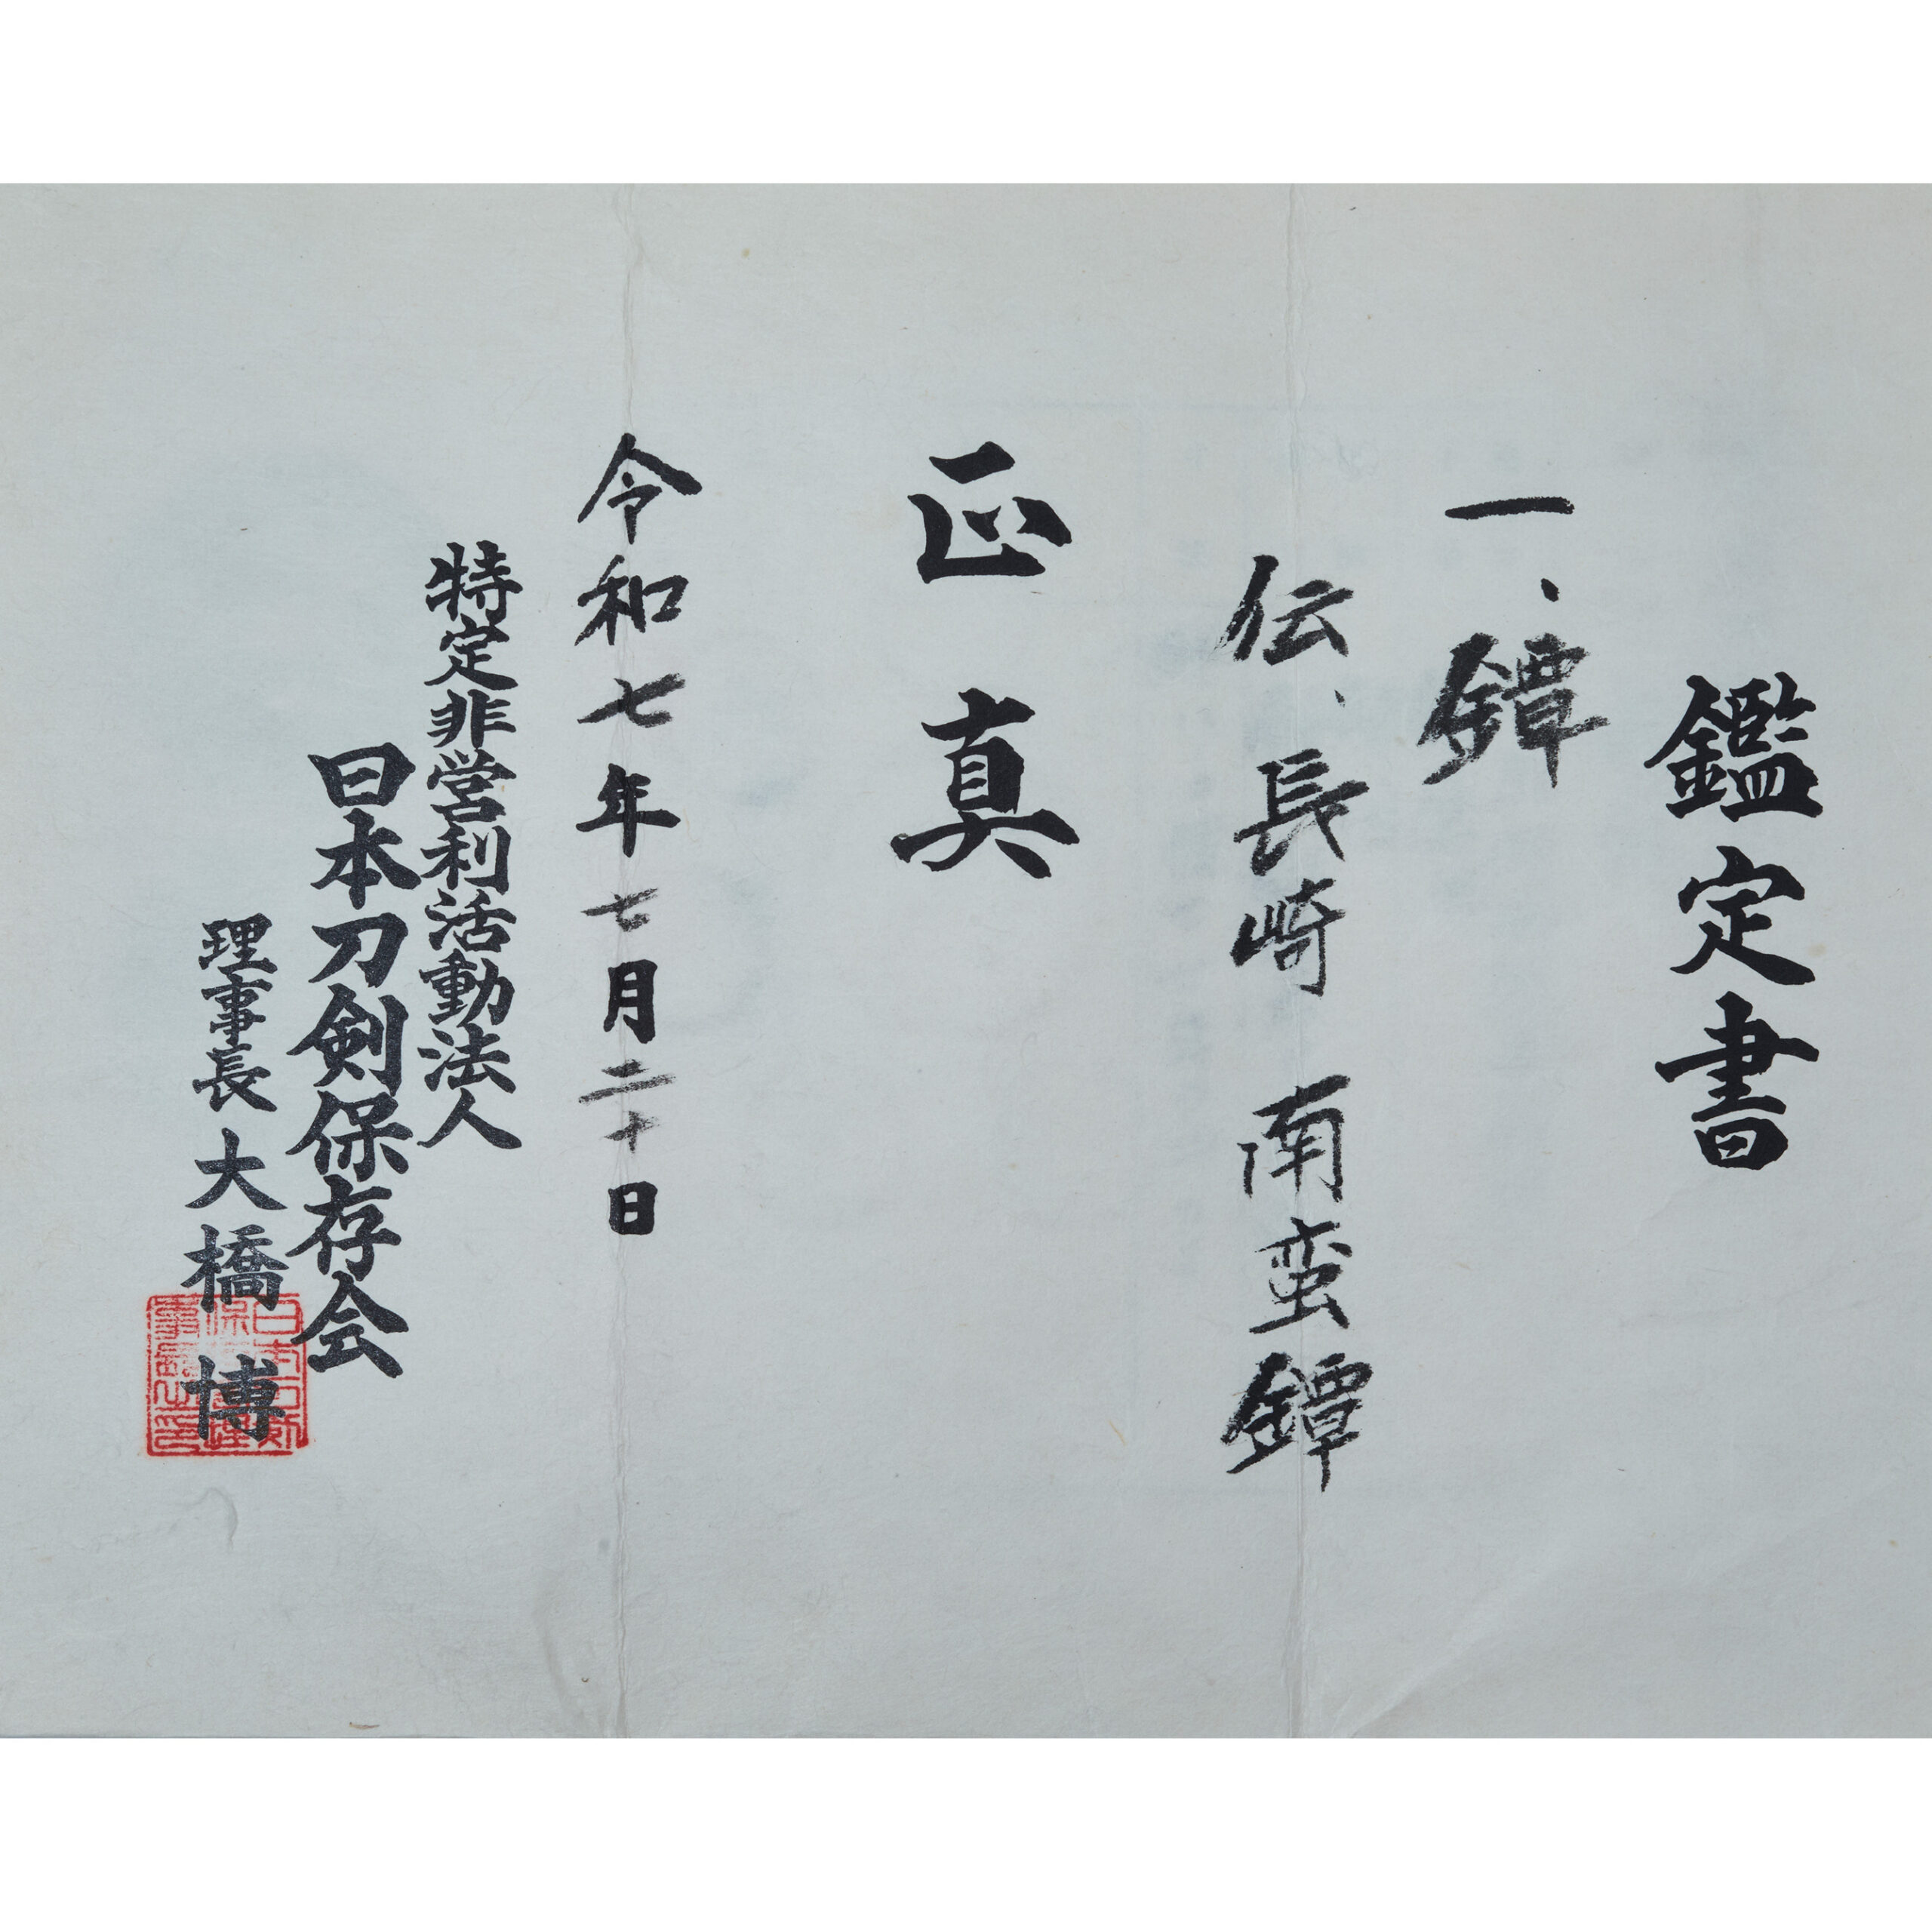 鑑定書
一、鐔
伝、長崎 南蛮鐔
正真
令和七年七月二十日
特定非営利活動法人
日本刀剣保存会
理事長 大橋 博